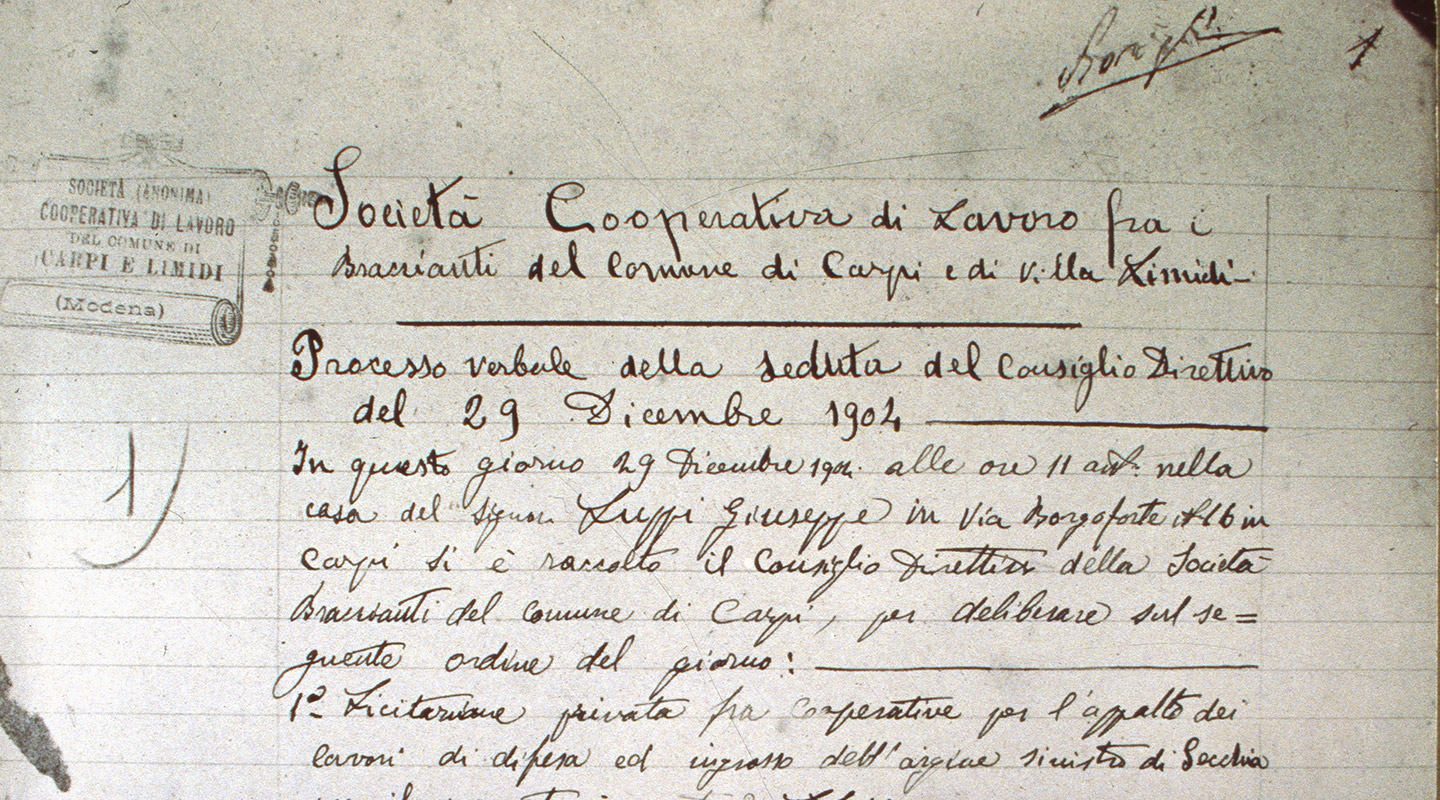 1
SOCIETÀ (ANONIMA)
COOPERATIVA DI LAVORO
DEL COMUNE DI
CARPI E LIMIDI
(Modena)
Società Cooperativa di Lavoro fra i
Braccianti del Comune di Carpi e di Villa Limidi
Processo verbale della seduta del Consiglio Direttivo
del 29 Dicembre 1904
1)
In questo giorno 29 Dicembre 1904. alle ore 11 ant. nella
casa del Signor Luppi Giuseppe in Via Borgoforte in
Carpi si è raccolto il Consiglio Direttivo della Società
Braccianti del Comune di Carpi, per deliberare sul se=
guente ordine del giorno:
1º Licitazione privata fra cooperative per l'appalto dei
lavori di difesa ed ingrosso dell'argine sinistro di Secchia